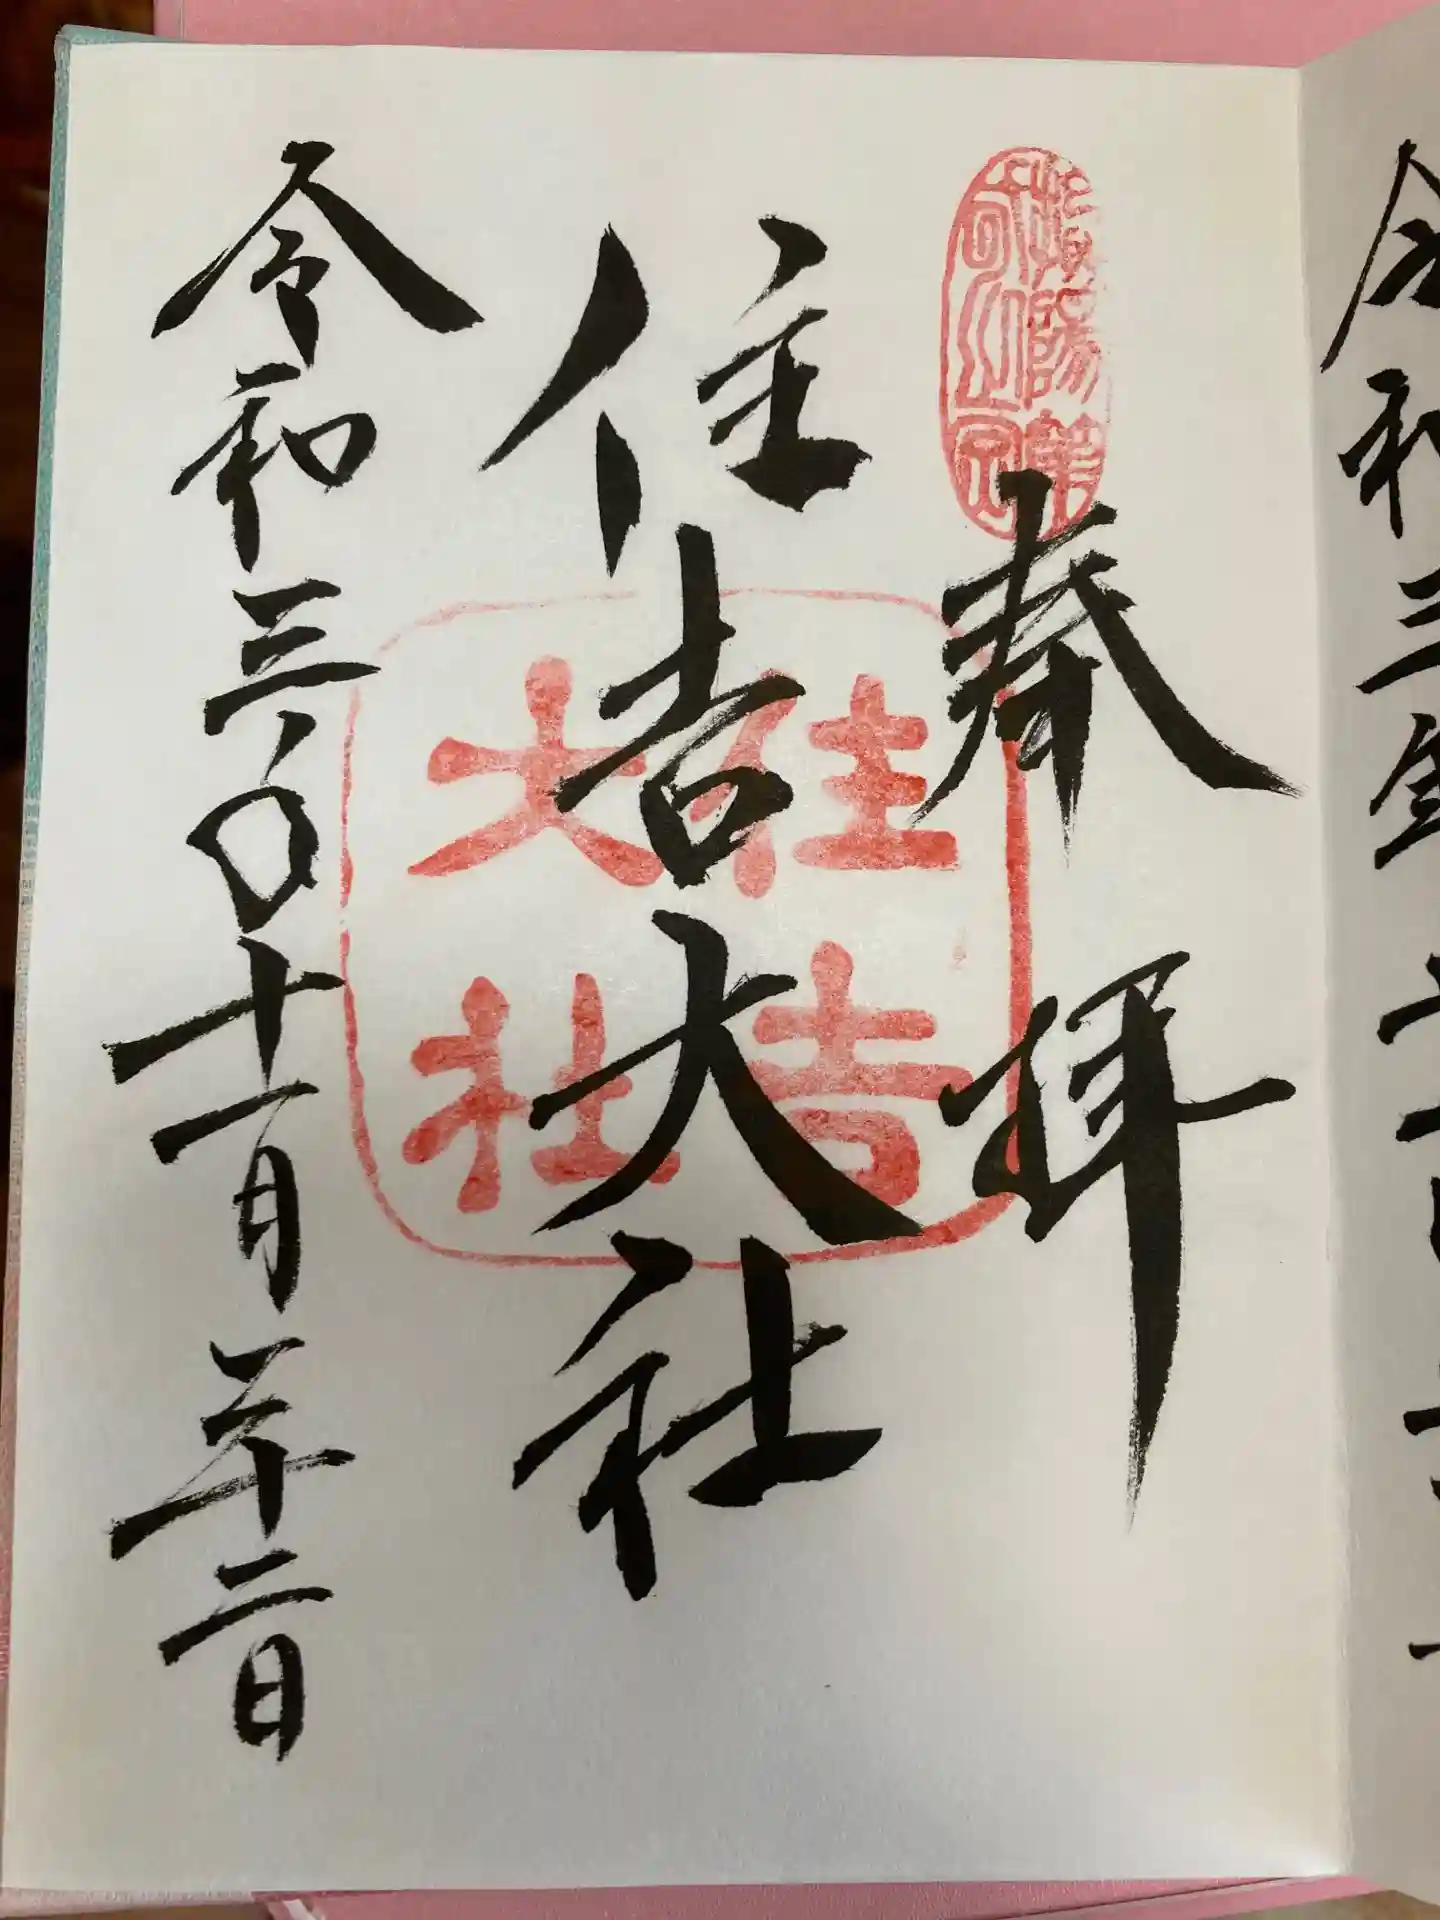 奉拝
住吉大社
令和三年十一月二十二日
住吉
大社
令和三年